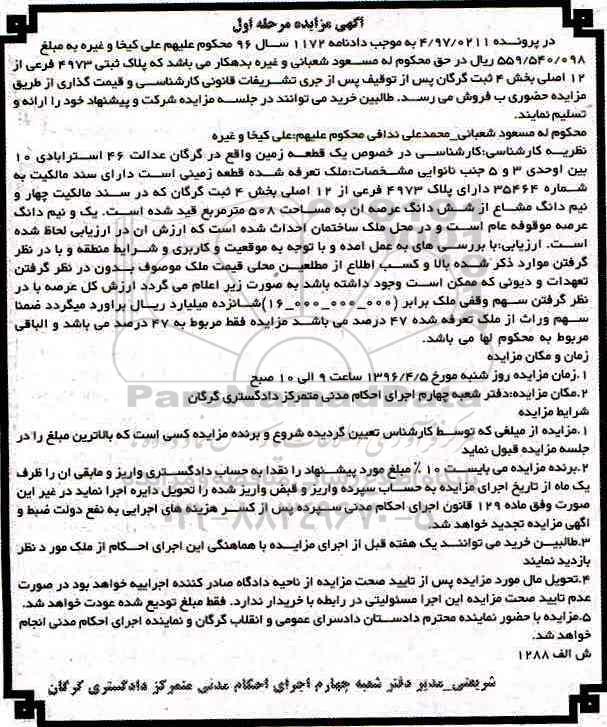 آگهی مزایده مرحله اول
در پرونده ۴/۹۷/۰۲۱۱ به موجب دادنامه ۱۱۷۲ سال ۹۶ محکوم علیهم علی کیخا و غیره به مبلغ
۵۵۹/۵۴۰/۰۹۸ ریال در حق محکوم له مسعود شعبانی و غیره بدهکار می باشد که پلاک ثبتی ۴۹۷۳ فرعی از
۱۲ اصلی بخش ۴ ثبت گرگان پس از توقیف پس از جری تشریفات قانونی کارشناسی و قیمت گذاری از طریق
مزایده حضوری ب فروش می رسد. طالبین خرید می توانند در جلسه مزایده شرکت و پیشنهاد خود را ارائه و
تسلیم نمایند.
محکوم له مسعود شعبانی_محمدعلی ندافی محکوم علیهم:علی کیخا و غیره
نظریه کارشناسی:کارشناسی در خصوص یک قطعه زمین واقع در گرگان عدالت ۴۶ استرابادی ۱۰
بین اوحدی ۳ و ۵ جنب نانوایی مشخصات:ملک تعرفه شده قطعه زمینی است دارای سند مالکیت به
شماره ۳۵۴۶۴ دارای پلاک ۴۹۷۳ فرعی از ۱۲ اصلی بخش ۴ ثبت گرگان که در سند مالکیت چهار و
نیم دانگ مشاع از شش دانگ عرصه ان به مساحت ۵۰۸ مترمربع قید شده است. یک و نیم دانگ
عرصه موقوفه عام است و در محل ملک ساختمان احداث شده است که ارزش ان در ارزیابی لحاظ شده
است. ارزیابی:با بررسی های به عمل امده و با توجه به موقعیت و کاربری و شرایط منطقه و با در نظر
گرفتن موارد ذکر شده بالا و کسب اطلاع از مطلعین محلی قیمت ملک موصوف بدون در نظر گرفتن
تعهدات و دیونی که ممکن است وجود داشته باشد به صورت زیر اعلام می گردد ارزش کل عرصه با در
نظر گرفتن سهم وقفی ملک برابر (۱۶_۰۰۰_۰۰۰_۰۰۰)شانزده میلیارد ریال براورد میگردد ضمنا
سهم وراث از ملک تعرفه شده ۴۷ درصد می باشد مزایده فقط مربوط به ۴۷ درصد می باشد و الباقی
مربوط به محکوم لها می باشد.
زمان و مکان مزایده
۱.زمان مزایده روز شنبه مورخ ۱۳۹۶/۴/۵ ساعت ۹ الی ۱۰ صبح
۲.مکان مزایده:دفتر شعبه چهارم اجرای احکام مدنی متمرکز دادگستری گرگان
شرایط مزایده
۱.مزایده از مبلغی که توسط کارشناس تعیین گردیده شروع و برنده مزایده کسی است که بالاترین مبلغ را در
جلسه مزایده قبول نماید
۲.برنده مزایده می بایست ۱۰ ٪ مبلغ مورد پیشنهاد را نقدا به حساب دادگستری واریز و مابقی ان را ظرف
یک ماه از تاریخ اجرای مزایده به حساب سپرده واریز و قبض واریز شده را تحویل دایره اجرا نماید در غیر این
صورت وفق ماده ۱۲۹ قانون اجرای احکام مدنی سپرده پس از کسر هزینه های اجرایی به نفع دولت ضبط و
اگهی مزایده تجدید خواهد شد.
۳.طالبین خرید می توانند یک هفته قبل از اجرای مزایده با هماهنگی این اجرای احکام از ملک مورد نظر
بازدید نمایند
۴.تحویل مال مورد مزایده پس از تایید صحت مزایده از ناحیه دادگاه صادر کننده اجراییه خواهد بود در صورت
عدم تایید صحت مزایده این اجرا مسئولیتی در رابطه با خریدار ندارد. فقط مبلغ تودیع شده عودت خواهد شد.
۵.مزایده با حضور نماینده محترم دادستان دادسرای عمومی و انقلاب گرگان و نماینده اجرای احکام مدنی انجام
خواهد شد.
ش الف ۱۲۸۸
شریعتی_مدیر دفتر شعبه چهارم اجرای احکام مدنی متمرکز دادگستری گرگان
ParsNamadData
۰۲۱-۸۸۳۴۹۶۷۰-۵